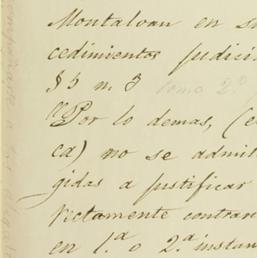 Montalvan en su
cedimientos judici
§ 5 n. 3 tomo 2.º
Por lo demas, (e
ca) no se admit
gidas a justificar
rectamente contrar
en 1.ª o 2.ª instan